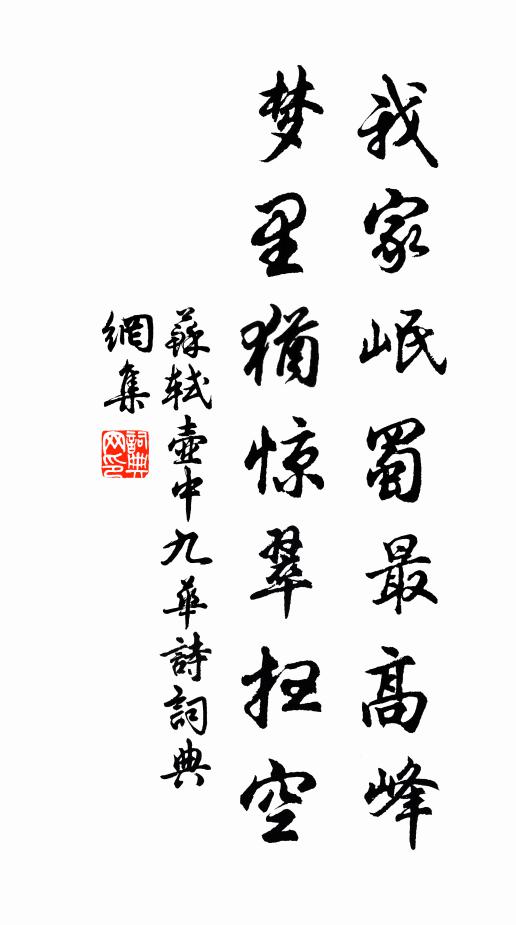 我家岷蜀最高峰
梦里猶惊翠扫空
蘇軾壺中九華詩詞典
網集
詞典
网印